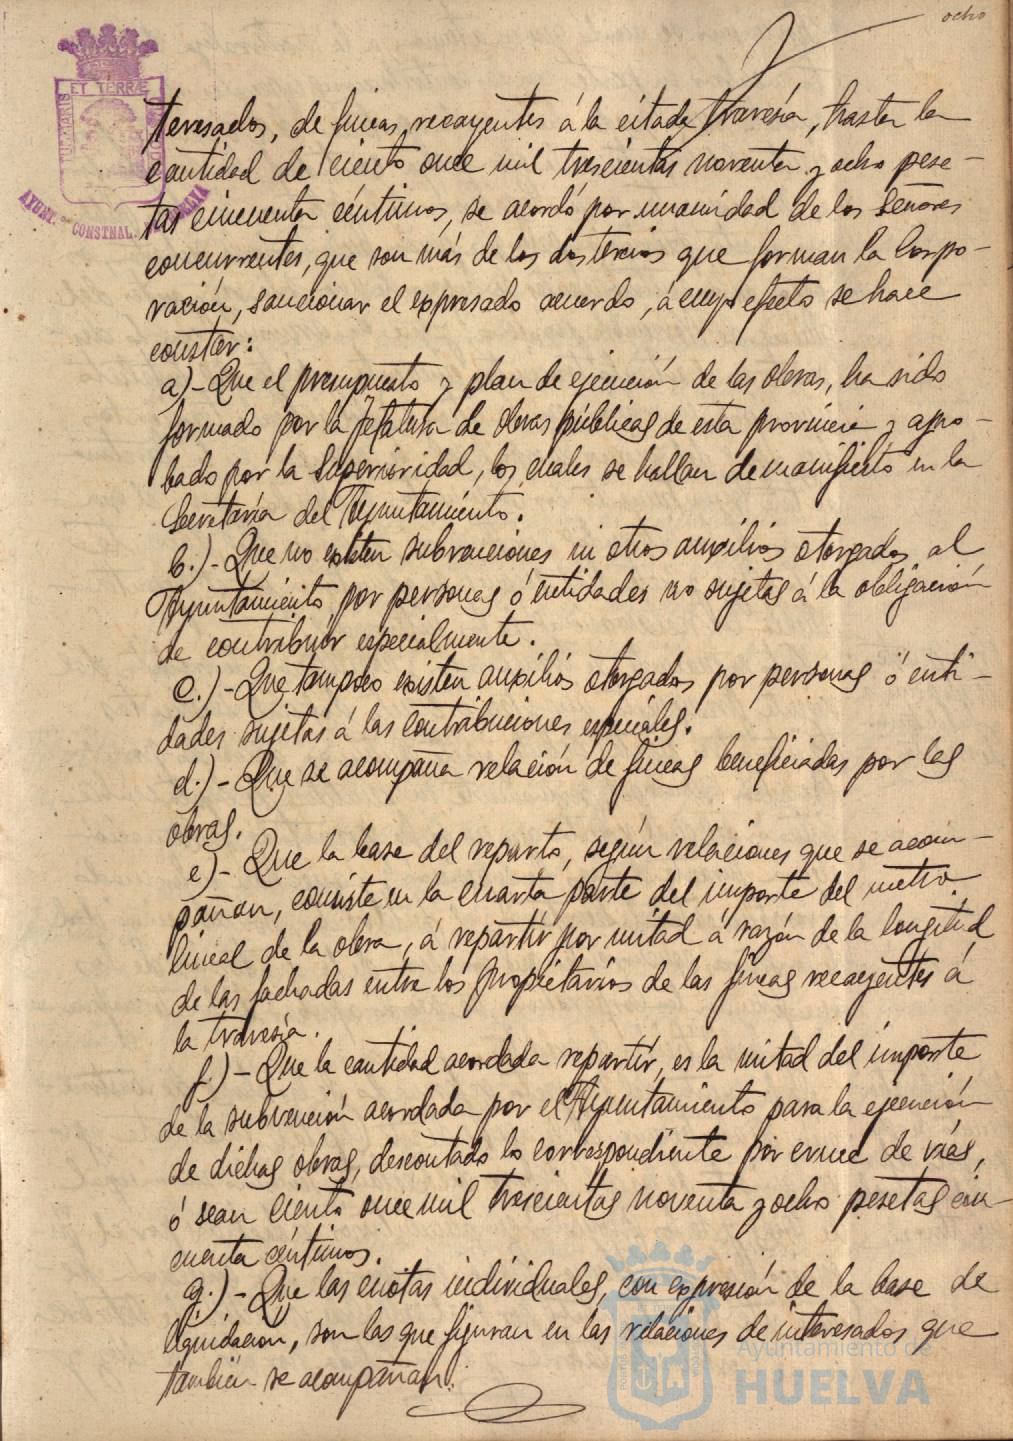 ocho
teresados, de fincas recayentes á la citada travesía, hasta la
cantidad de ciento once mil trescientas noventa y ocho pese-
tas cincuenta céntimos, se acordó por unanimidad de los Señores
concurrentes, que son más de los dos tercios que forman la Corpo-
ración, sancionar el expresado acuerdo, á cuyo efecto se hace
constar:
a)- Que el presupuesto y plan de ejecución de las obras, ha sido
formado por la Jefatura de Obras públicas de esta provincia y apro-
bado por la Superioridad, los cuales se hallan de manifiesto en la
Secretaría del Ayuntamiento.
b.)- Que no existen subvenciones ni otros auxilios otorgados al
Ayuntamiento por personas ó entidades no sujetas á la obligación
de contribuir especialmente.
c.)- Que tampoco existen auxilios otorgados por personas ó enti-
dades sujetas á las contribuciones especiales.
d.)- Que se acompaña relación de fincas beneficiadas por las
obras.
e)- Que la base del reparto, según relaciones que se acom-
pañan, consiste en la cuarta parte del importe del metro
lineal de la obra, á repartir por mitad á razón de la longitud
de las fachadas entre los propietarios de las fincas recayentes á
la travesía.
f)- Que la cantidad acordada repartir, es la mitad del importe
de la subvención acordada por el Ayuntamiento para la ejecución
de dichas obras, descontado lo correspondiente por cruce de vías,
ó sean ciento once mil trescientas noventa y ocho pesetas cin-
cuenta céntimos.
g.)- Que las cuotas individuales, con expresión de la base de
liquidación, son las que figuran en las relaciones de interesados que
también se acompañan.
ET TERRÆ
AYUNT. CONSTNAL.
Ayuntamiento de
HUELVA